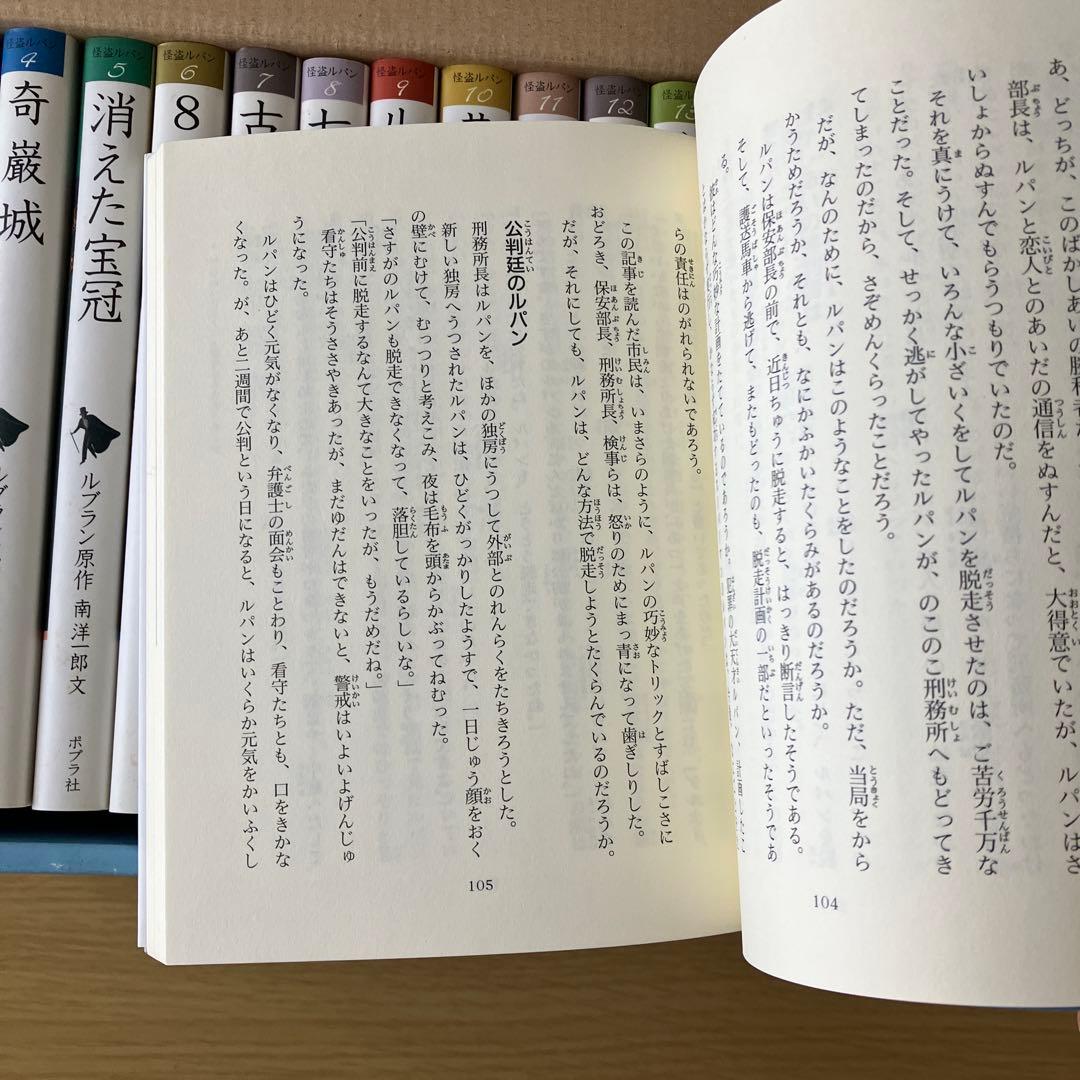 怪盗ルパン
4
奇巌城
怪盗ルパン
5
消えた宝冠
ルブラン原作 南洋一郎 文
ポプラ社
怪盗ルパン
6
8
怪盗ルパン
7
古
怪盗ルパン
8
七
怪盗ルパン
9
ル
怪盗ルパン
10
怪盗ルパン
11
怪盗ルパン
12
怪盗ルパン
13
あ、どっちが、このばかしあいの勝利者
部長は、ルパンと恋人とのあいだの通信をぬすんだと、大得意でいたが、ルパンはさ
いしょからぬすんでもらうつもりでいたのだ。
それを真にうけて、いろんな小ざいくをしてルパンを脱走させたのは、ご苦労千万な
ことだった。そして、せっかく逃がしてやったルパンが、のこのこ刑務所へもどってき
てしまったのだから、さぞめんくらったことだろう。
だが、なんのために、ルパンはこのようなことをしたのだろうか。ただ、当局をから
かうためだろうか、それとも、なにかふかいたくらみがあるのだろうか。
ルパンは保安部長の前で、近日ちゅうに脱走すると、はっきり断言したそうである。
そして、護送馬車から逃げて、またもどったのも、脱走計画の一部だといったそうであ
る。
104
らの責任はのがれられないであろう。
この記事を読んだ市民は、いまさらのように、ルパンの巧妙なトリックとすばしこさに
おどろき、保安部長、刑務所長、検事らは、怒りのためにまっ青になって歯ぎしりした。
だが、それにしても、ルパンは、どんな方法で脱走しようとたくらんでいるのだろうか。
公判廷のルパン
刑務所長はルパンを、ほかの独房にうつして外部とのれんらくをたちきろうとした。
新しい独房へうつされたルパンは、ひどくがっかりしたようすで、一日じゅう顔をおく
の壁にむけて、むっつりと考えこみ、夜は毛布を頭からかぶってねむった。
「さすがのルパンも脱走できなくなって、落胆しているらしいな。」
「公判前に脱走するなんて大きなことをいったが、もうだめだね。」
看守たちはそうささやきあったが、まだゆだんはできないと、警戒はいよいよげんじゅ
うになった。
ルパンはひどく元気がなくなり、弁護士の面会もことわり、看守たちとも、口をきかな
くなった。が、あと二週間で公判という日になると、ルパンはいくらか元気をかいふくし
105